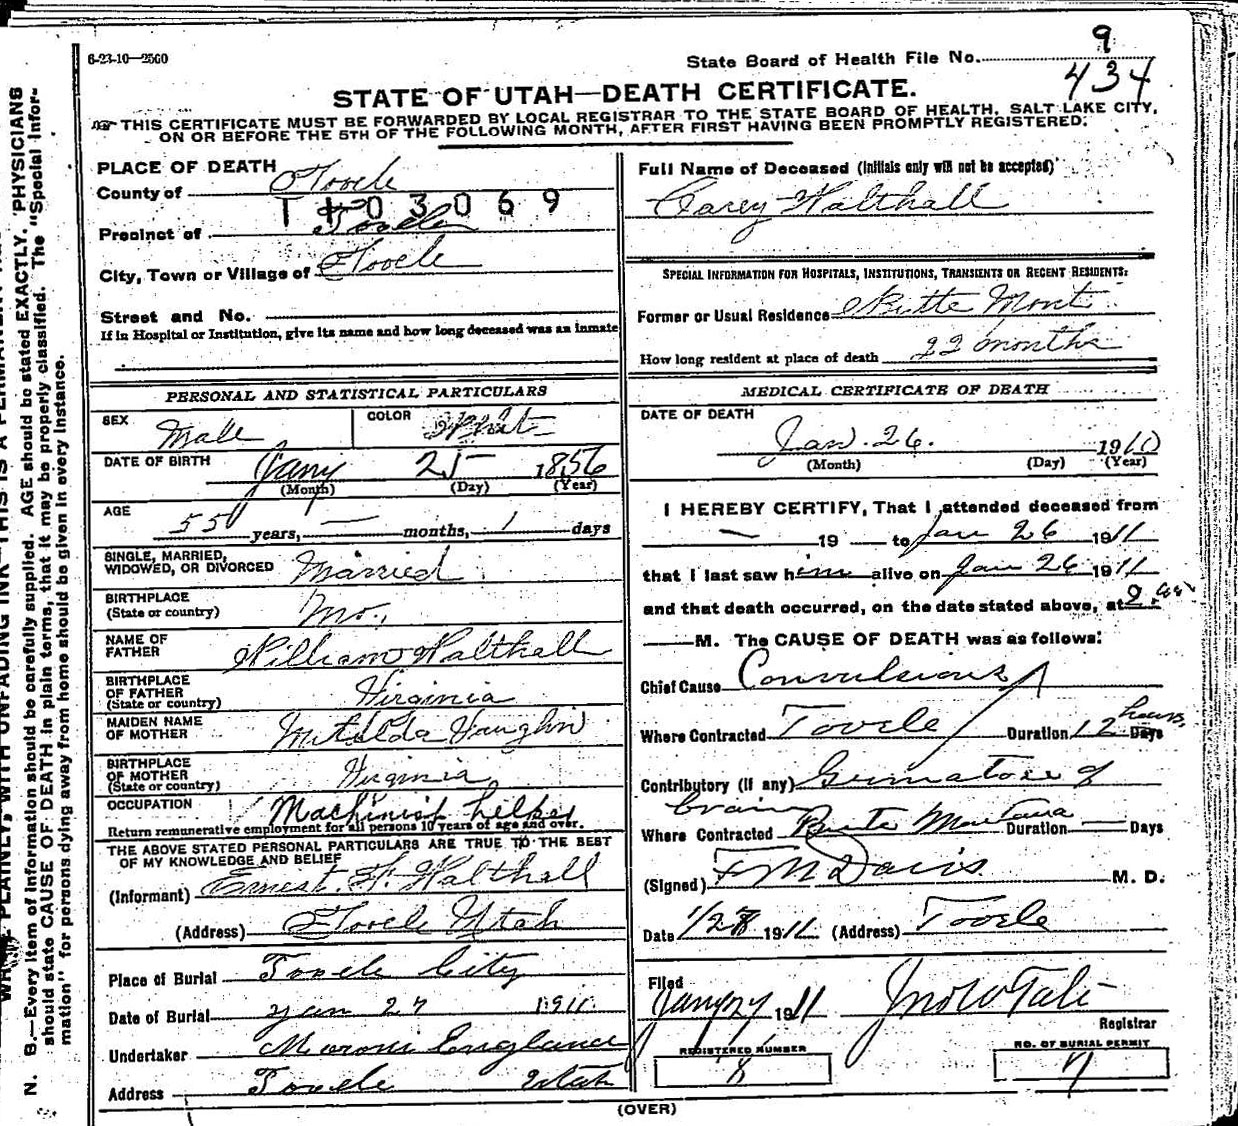 6-23-10—2500
State Board of Health File No. 9
434
STATE OF UTAH—DEATH CERTIFICATE.
THIS CERTIFICATE MUST BE FORWARDED BY LOCAL REGISTRAR TO THE STATE BOARD OF HEALTH, SALT LAKE CITY,
ON OR BEFORE THE 5TH OF THE FOLLOWING MONTH, AFTER FIRST HAVING BEEN PROMPTLY REGISTERED.
PLACE OF DEATH
County of Tooele
03069
Precinct of Tooele
City, Town or Village of Tooele
Street and No.
If in Hospital or Institution, give its name and how long deceased was an inmate
PERSONAL AND STATISTICAL PARTICULARS
SEX Male COLOR White
DATE OF BIRTH Jany 25 1856
(Month) (Day) (Year)
AGE
55 years, — months, 1 days
SINGLE, MARRIED,
WIDOWED, OR DIVORCED Married
BIRTHPLACE
(State or country) Mo.
NAME OF
FATHER William Walthall
BIRTHPLACE
OF FATHER
(State or country) Virginia
MAIDEN NAME
OF MOTHER Matilda Vaughn
BIRTHPLACE
OF MOTHER
(State or country) Virginia
OCCUPATION Machinist helper
Return remunerative employment for all persons 10 years of age and over.
THE ABOVE STATED PERSONAL PARTICULARS ARE TRUE TO THE BEST
OF MY KNOWLEDGE AND BELIEF
(Informant) Ernest W. Walthall
(Address) Tooele Utah
Place of Burial Tooele City
Date of Burial Jan 27 1911
Undertaker Moroni England
Address Tooele Utah
Full Name of Deceased (Initials only will not be accepted)
Carey Walthall
SPECIAL INFORMATION FOR HOSPITALS, INSTITUTIONS, TRANSIENTS OR RECENT RESIDENTS:
Former or Usual Residence Butte Mont
How long resident at place of death 22 months
MEDICAL CERTIFICATE OF DEATH
DATE OF DEATH
Jan. 26. 1910
(Month) (Day) (Year)
I HEREBY CERTIFY, That I attended deceased from
— 19 — to Jan 26 1911
that I last saw him alive on Jan 26 1911
and that death occurred, on the date stated above, at
M. The CAUSE OF DEATH was as follows:
Chief Cause Convulsions
Where Contracted Tooele Duration 12 hours Days
Contributory (if any) of
brain
Where Contracted Butte Montana Duration — Days
(Signed) F M Davis M. D.
Date 1/27 1911 (Address) Tooele
Filed
Jany 27 1911 Jno W Tate
Registrar
REGISTERED NUMBER
8
NO. OF BURIAL PERMIT
7
(OVER)
N. B.—Every item of information should be carefully supplied. AGE should be stated EXACTLY. PHYSICIANS
should state CAUSE OF DEATH in plain terms, that it may be properly classified. The "Special Infor-
mation" for persons dying away from home should be given in every instance.